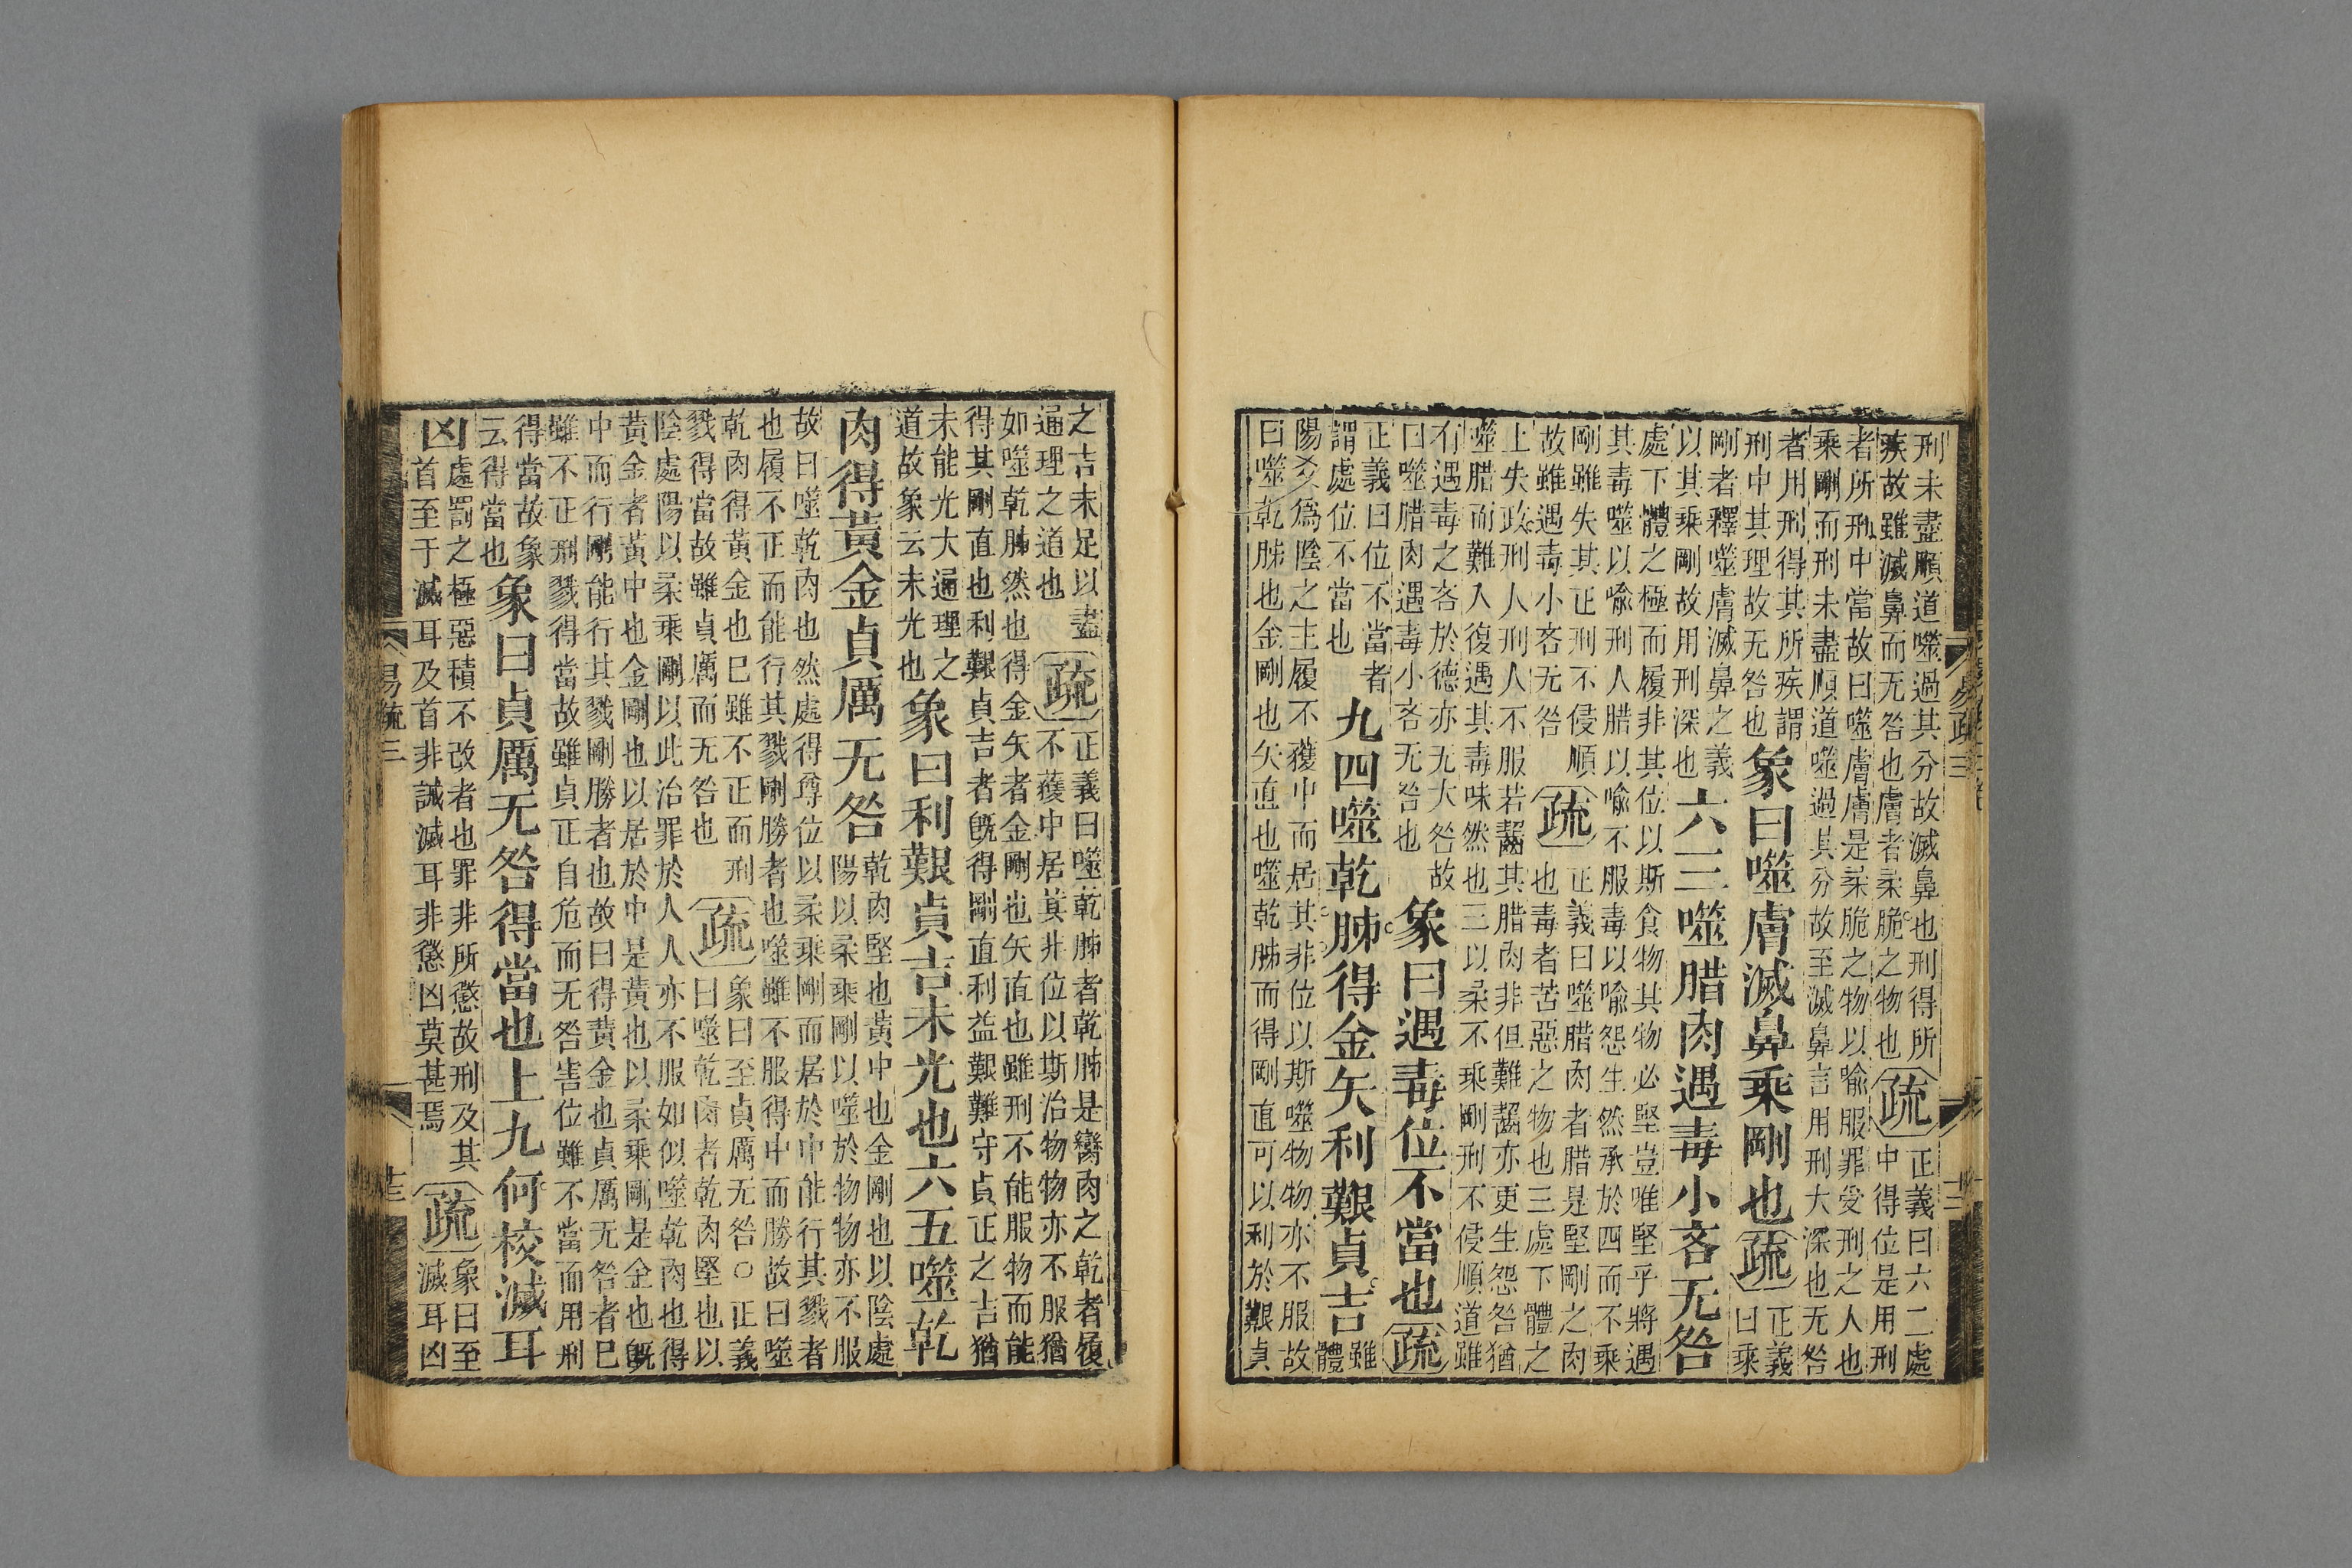 易疏三
十二
刑未盡順道噬過其分故滅鼻也刑得所
疾故雖滅鼻而无咎也膚者柔脆之物也
疏
正義曰六二處
中得位是用刑
者所刑中當故曰噬膚膚是柔脆之物以喻服罪受刑之人也
乘剛而刑未盡順道噬過其分故至滅鼻言用刑大深也无咎
者用刑得其所疾謂
刑中其理故无咎也
象曰噬膚滅鼻乘剛也
疏
正義
曰乘
剛者釋噬膚滅鼻之義
以其乘剛故用刑深也
六三噬腊肉遇毒小吝无咎
處下體之極而履非其位以斯食物其物必堅豈唯堅乎將遇
其毒噬以喻刑人腊以喻不服毒以喻怨生然承於四而不乘
剛雖失其正刑不侵順
故雖遇毒小吝无咎
疏
正義曰噬腊肉者腊是堅剛之肉
也毒者苦惡之物也三處下體之
上失政刑人刑人不服若齧其腊肉非但難齧亦更生怨咎猶
噬腊而難入復遇其毒味然也三以柔不乘剛刑不侵順道雖
有遇毒之吝於德亦无大咎故
曰噬腊肉遇毒小吝无咎也
象曰遇毒位不當也
疏
正義曰位不當者
謂處位不當也
九四噬乾胏得金矢利艱貞吉
雖
體
陽爻為陰之主履不獲中而居其非位以斯噬物物亦不服故
曰噬乾胏也金剛也矢直也噬乾胏而得剛直可以利於艱貞
之吉未足以盡
通理之道也
疏
正義曰噬乾胏者乾胏是臠肉之乾者履
不獲中居其非位以斯治物物亦不服猶
如噬乾胏然也得金矢者金剛也矢直也雖刑不能服物而能
得其剛直也利艱貞吉者旣得剛直利益艱難守貞正之吉猶
未能光大通理之
道故象云未光也
象曰利艱貞吉未光也六五噬乾
肉得黃金貞厲无咎
乾肉堅也黃中也金剛也以陰處
陽以柔乘剛以噬於物物亦不服
故曰噬乾肉也然處得尊位以柔乘剛而居於中能行其戮者
也履不正而能行其戮剛勝者也噬雖不服得中而勝故曰噬
乾肉得黃金也已雖不正而刑
戮得當故雖貞厲而无咎也
疏
象曰至貞厲无咎○正義
曰噬乾肉者乾肉堅也以
陰處陽以柔乘剛以此治罪於人人亦不服如似噬乾肉也得
黃金者黃中也金剛也以居於中是黃也以柔乘剛是金也旣
中而行剛能行其戮剛勝者也故曰得黃金也貞厲无咎者已
雖不正刑戮得當故雖貞正自危而无咎害位雖不當而用刑
得當故象
云得當也
象曰貞厲无咎得當也上九何校滅耳
凶
處罰之極惡積不改者也罪非所懲故刑及其
首至于滅耳及首非誡滅耳非懲凶莫甚焉
疏
象曰至
滅耳凶
易疏三
十三